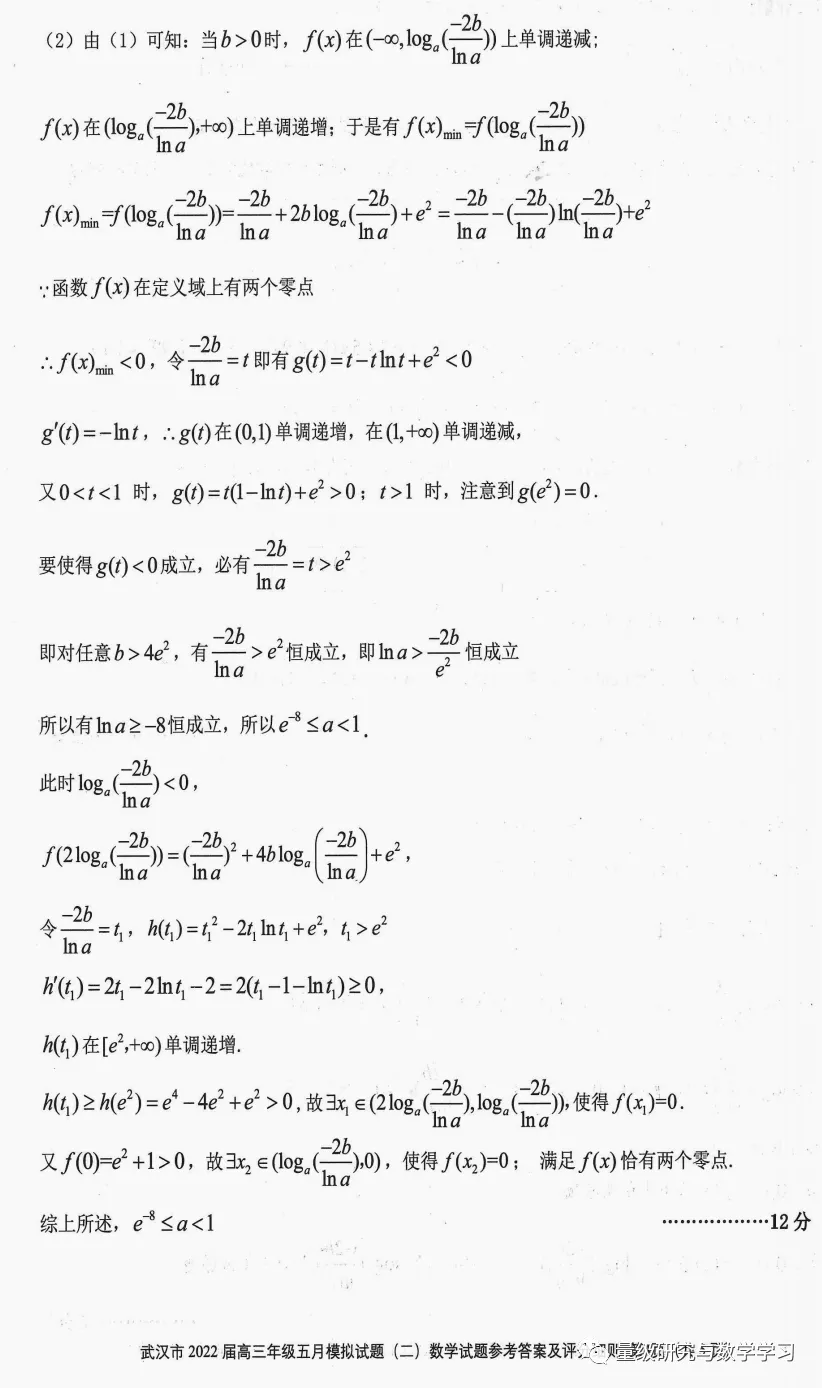 (2)由(1)可知:当b>0时, f(x)在(-∞,logₐ(-2b/ln a))上单调递减;
f(x)在(logₐ(-2b/ln a),+∞)上单调递增;于是有f(x)min=f(logₐ(-2b/ln a))
f(x)min=f(logₐ(-2b/ln a))=-2b/ln a+2blogₐ(-2b/ln a)+e²=-2b/ln a-(-2b/ln a)ln(-2b/ln a)+e²
∵函数f(x)在定义域上有两个零点
∴f(x)min<0,令-2b/ln a=t即有g(t)=t-tlnt+e²<0
g′(t)=-lnt,∴g(t)在(0,1)单调递增,在(1,+∞)单调递减,
又0<t<1 时,g(t)=t(1-lnt)+e²>0;t>1 时,注意到g(e²)=0.
要使得g(t)<0成立,必有-2b/ln a=t>e²
即对任意b>4e²,有-2b/ln a>e²恒成立,即ln a>-2b/e²恒成立
所以有ln a≥-8恒成立,所以e⁻⁸≤a<1.
此时logₐ(-2b/ln a)<0,
f(2logₐ(-2b/ln a))=(-2b/ln a)²+4blogₐ(-2b/ln a)+e²,
令-2b/ln a=t₁,h(t₁)=t₁²-2t₁lnt₁+e²,t₁>e²
h′(t₁)=2t₁-2lnt₁-2=2(t₁-1-lnt₁)≥0,
h(t₁)在[e²,+∞)单调递增.
h(t₁)≥h(e²)=e⁴-4e²+e²>0,故∃x₁∈(2logₐ(-2b/ln a),logₐ(-2b/ln a)),使得f(x₁)=0.
又f(0)=e²+1>0,故∃x₂∈(logₐ(-2b/ln a),0),使得f(x₂)=0; 满足f(x)恰有两个零点.
综上所述,e⁻⁸≤a<1 ………………12分
武汉市2022届高三年级五月模拟试题(二)数学试题参考答案及评
量级研究与数学学习